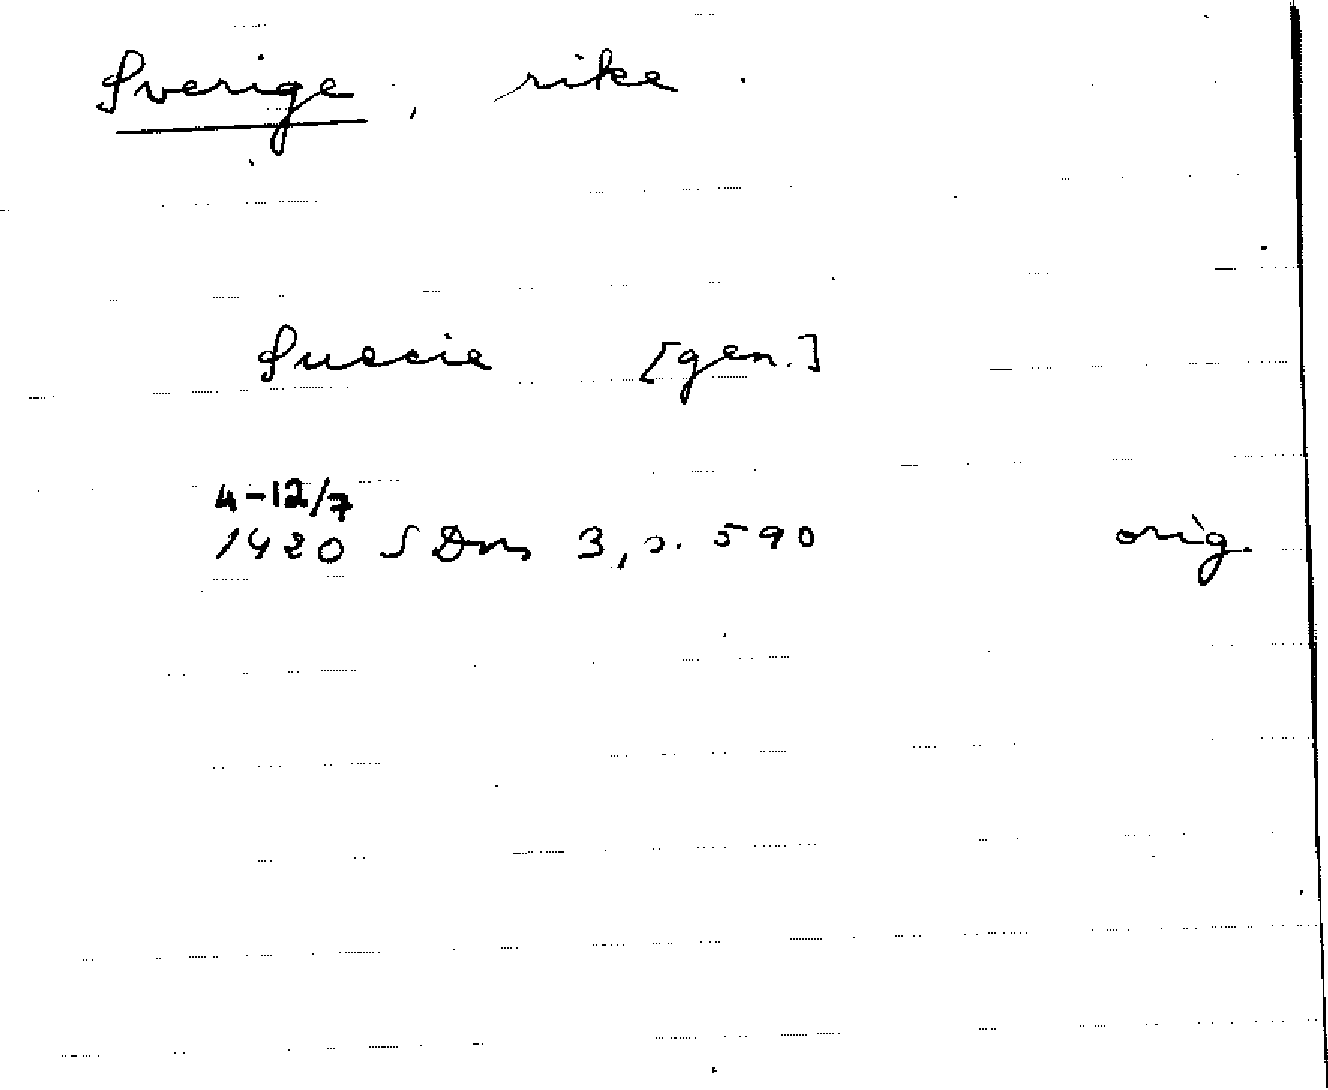 Sverige, rike.
Suecie [gen.]
4-12/7
1420 SDns 3, s. 590 orig.